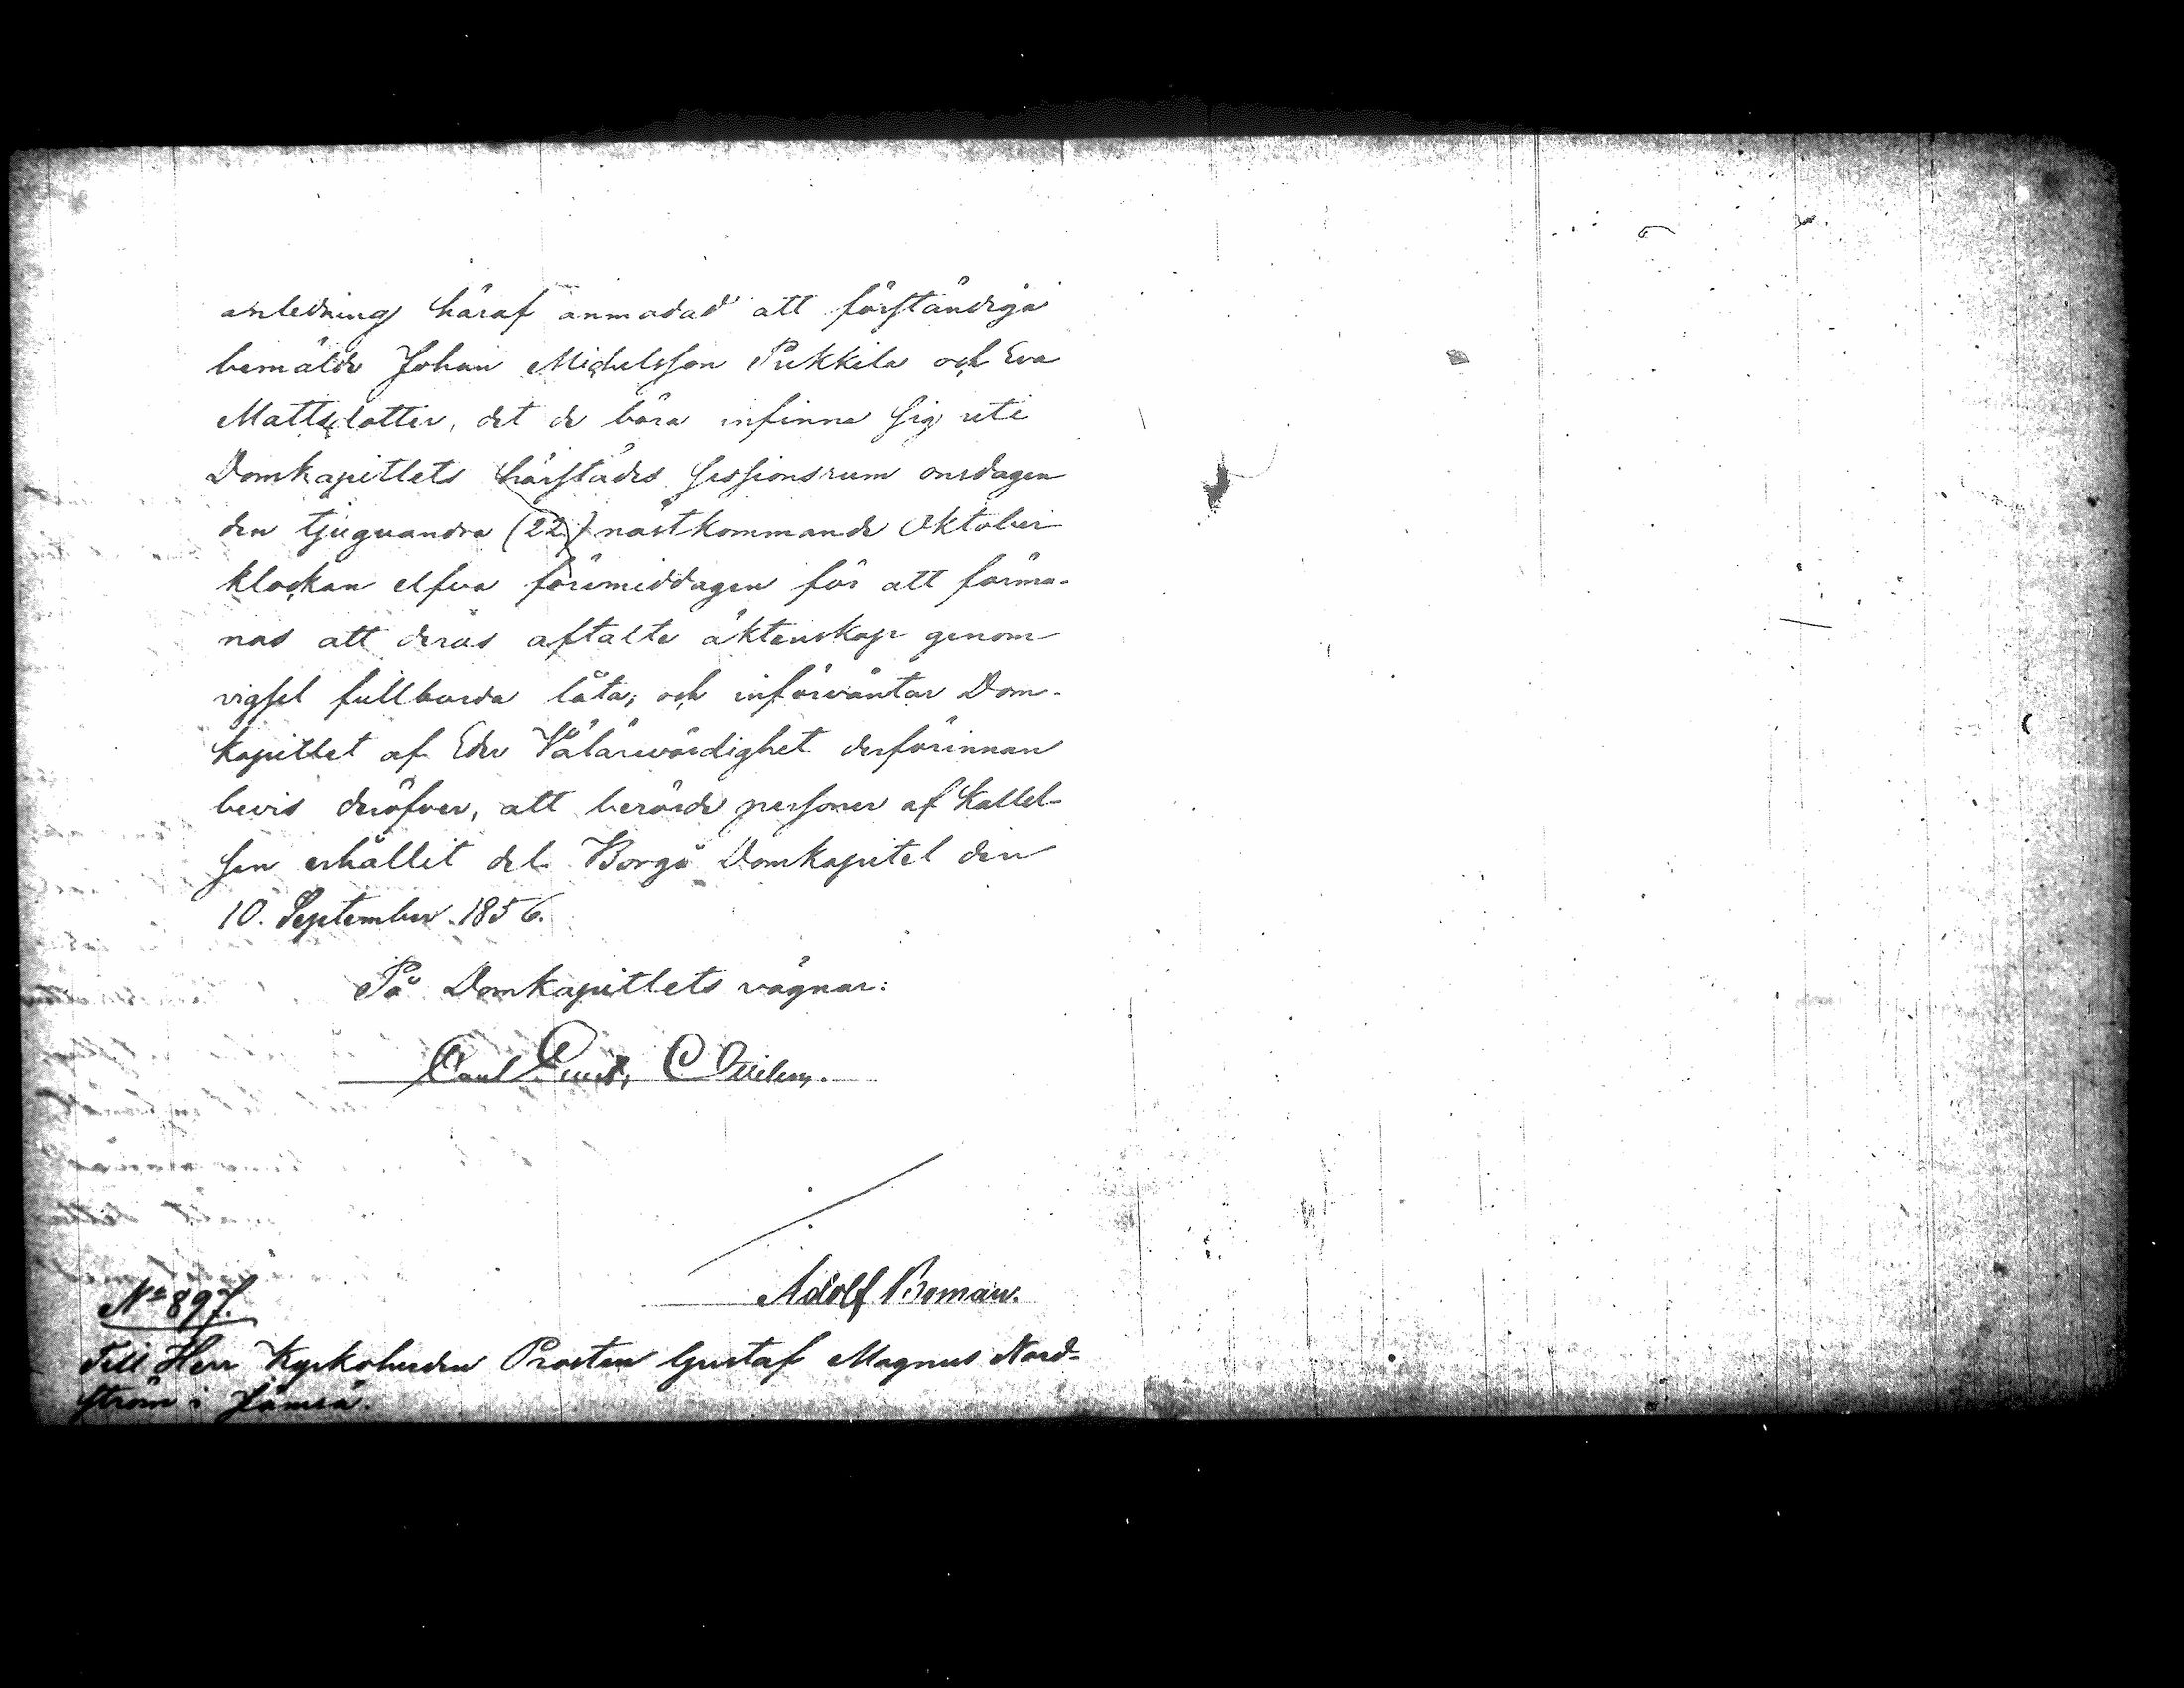 anledning häraf anmodad att förständiga
bemälde Johan Michelsson Pukkila och Eva
Mattsdotter, det de böra infinna sig uti
Domkapitlets härstädes sessionsrum onsdagen
den tjuguandra (22) nästkommande Oktober
klockan elfva förmiddagen för att förma-
nas att deras aftalte äktenskap genom
vigsel fullborda låta; och införväntar Dom-
kapitlet af Eder Välärevördighet derförinnan
bevis deröfver, att berörde personer af kallel-
sen erhållit del. Borgå Domkapitel den
10. September. 1856.
På Domkapitlets vägnar:
Carl
Adolf Boman.
No 897.
Till Herr Kyrkoherden Prosten Gustaf Magnus Nord-
ström i Jämsä.